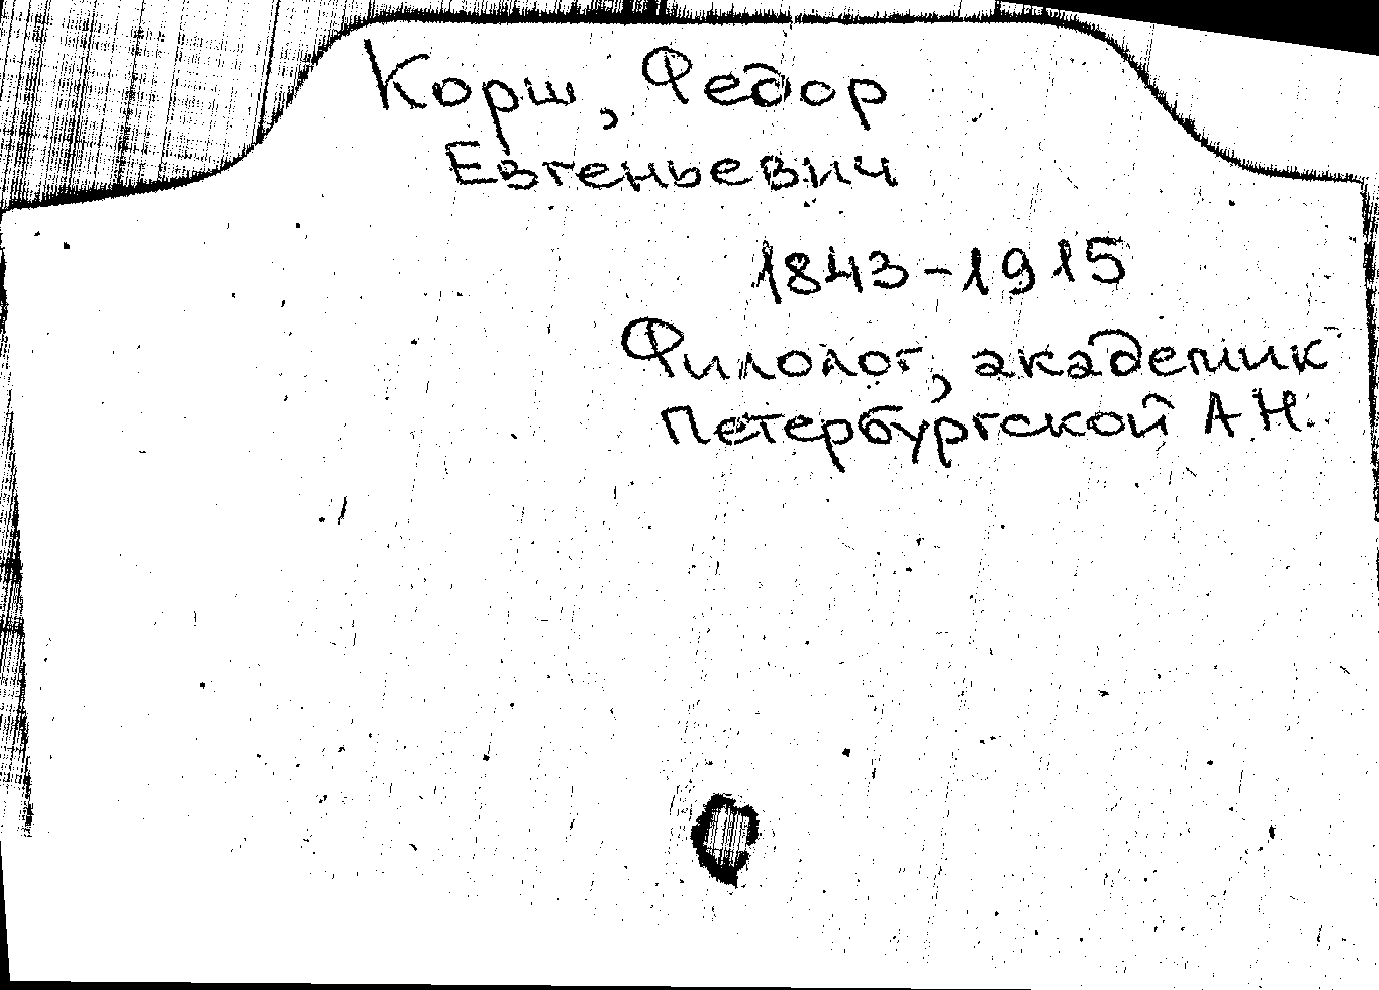 Корш, Федор
Евгеньевич
1843-1915
Филолог, академик
Петербургской АН.